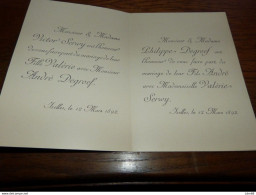 Monsieur & Madame
Victor Servoy ont l'honneur
de vous faire part du mariage de leur
Fille Valérie avec Monsieur
André Degroof.
Ixelles, le 12 Mars
Monsieur & Madame
Philippe Degroof ont
l'honneur de vous faire part du
mariage de leur Fils André
avec Mademoiselle Valérie
Servoy.
Ixelles, le 12 Mars